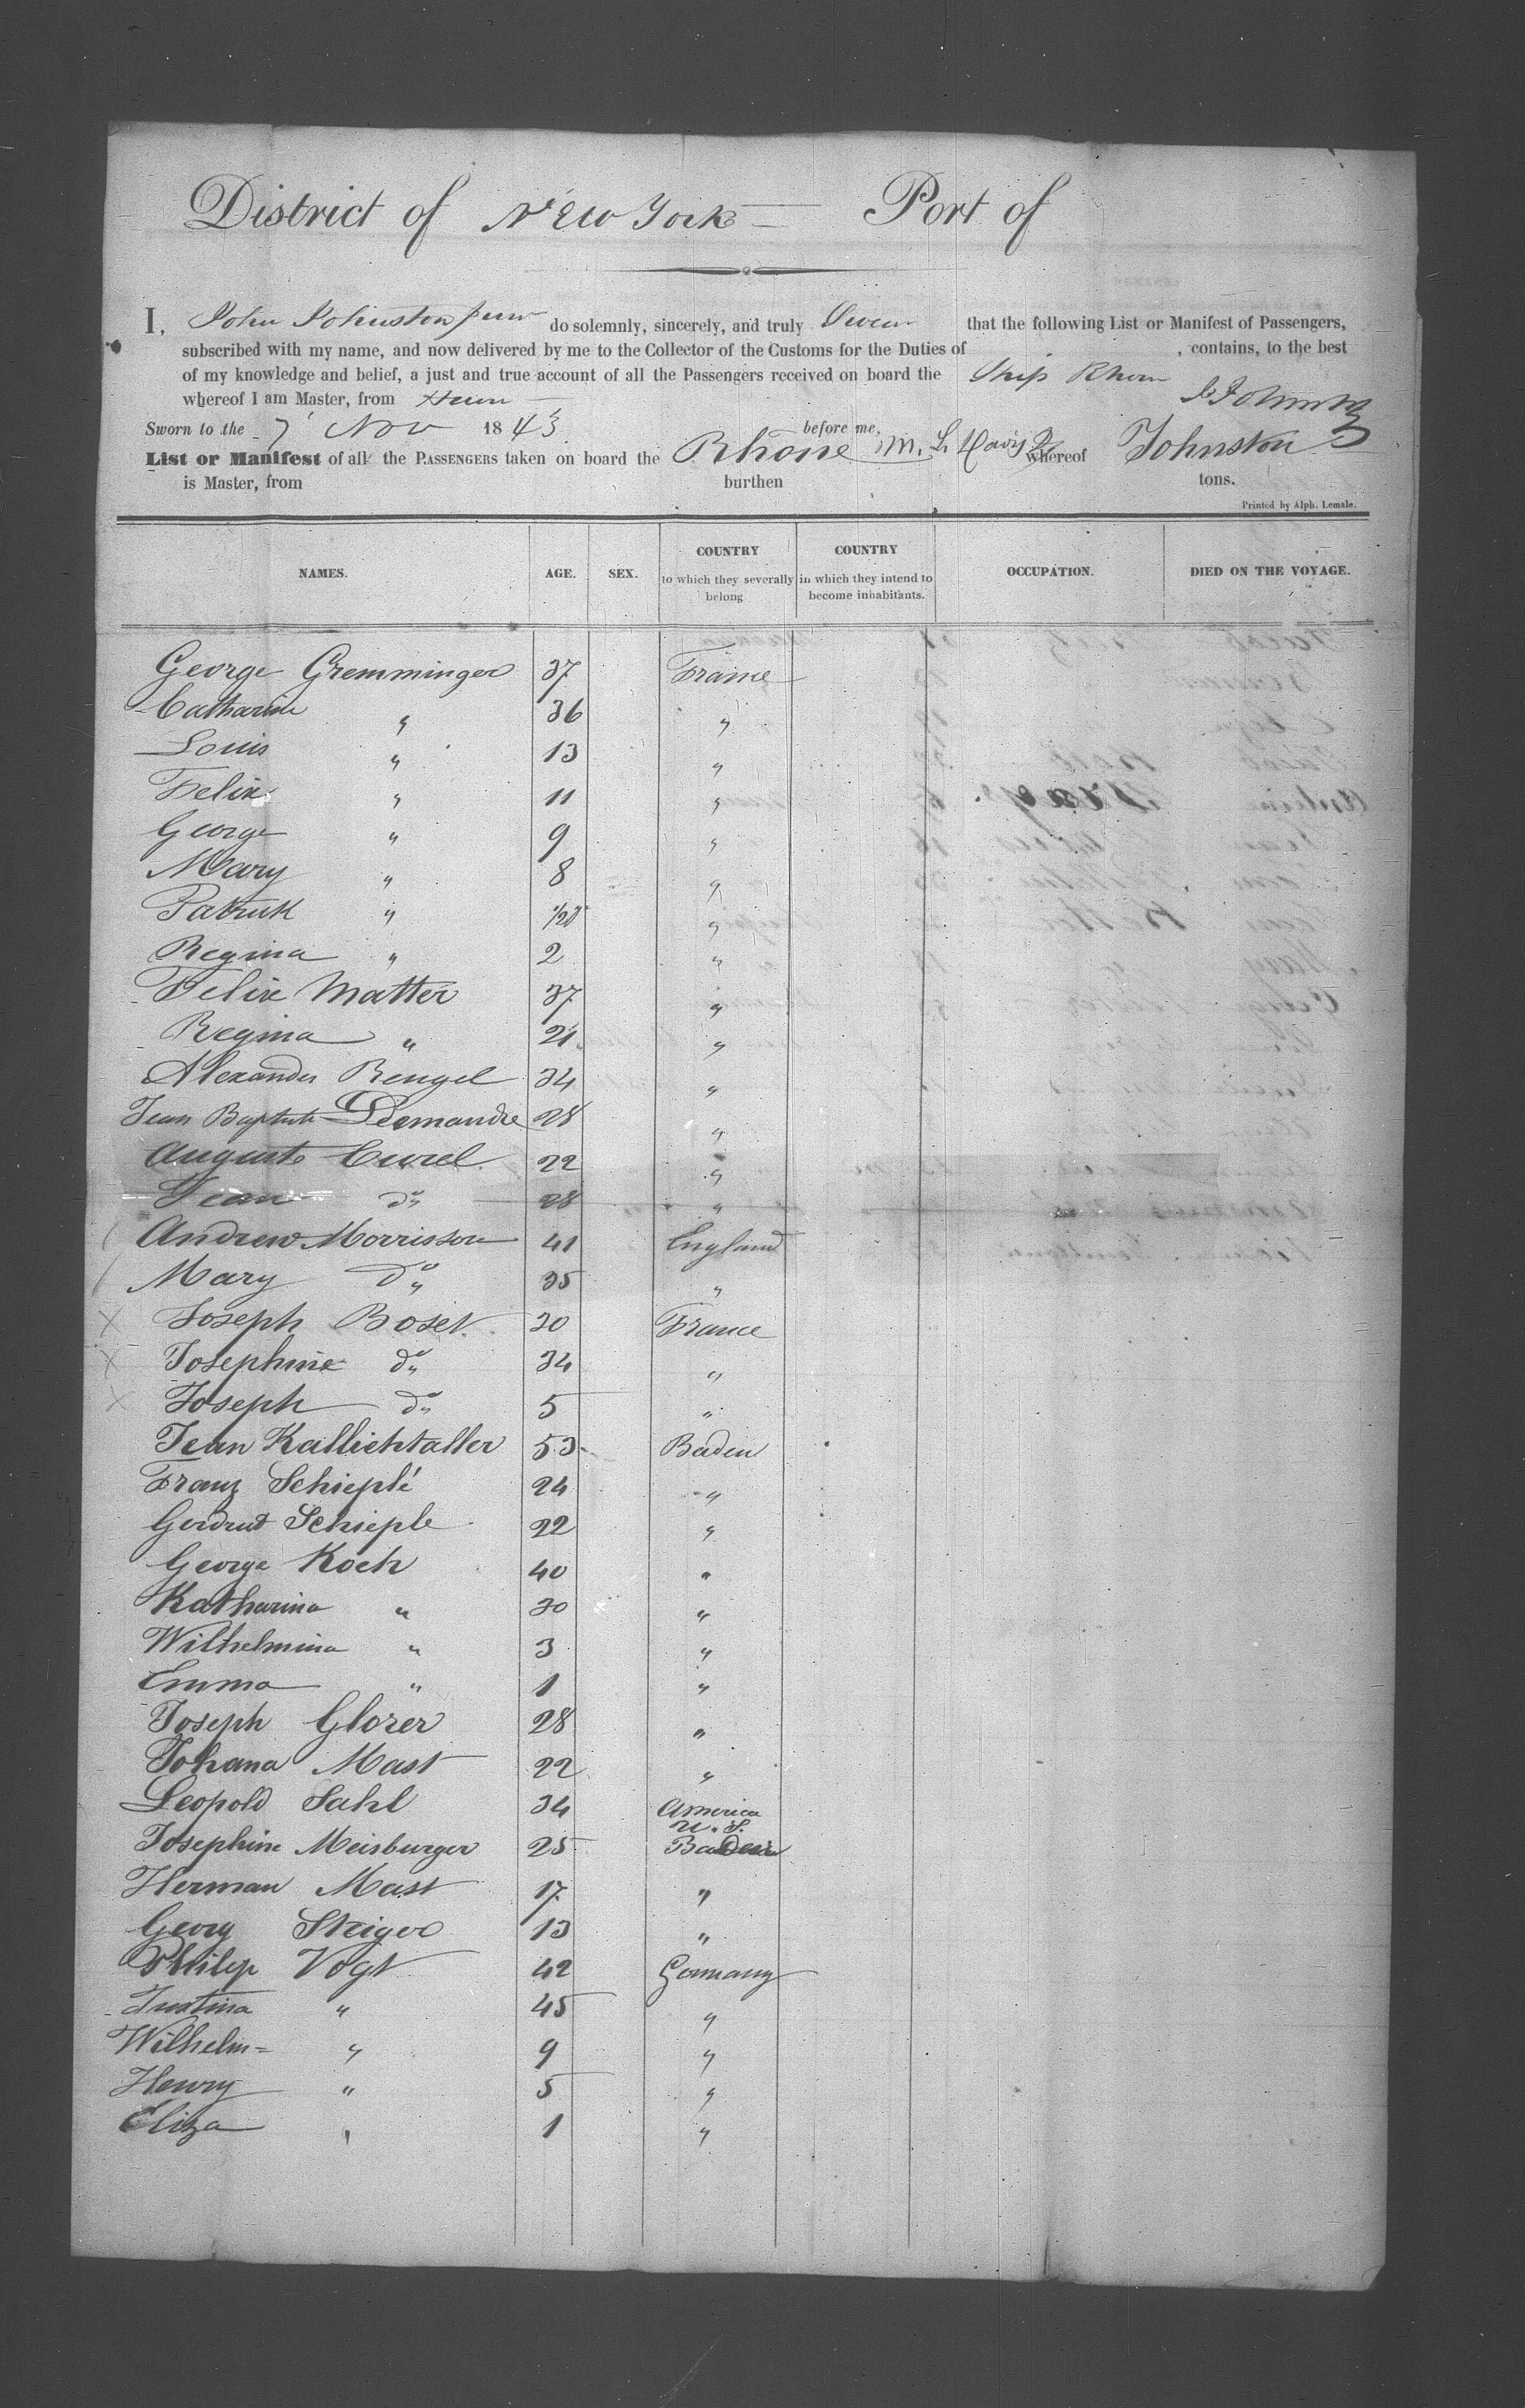 District of New York — Port of
I, John Johnston junr do solemnly, sincerely, and truly Swear that the following List or Manifest of Passengers,
subscribed with my name, and now delivered by me to the Collector of the Customs for the Duties of , contains, to the best
of my knowledge and belief, a just and true account of all the Passengers received on board the Ship Rhone
whereof I am Master, from Havre J. Johnston
Sworn to the 7 Nov 1843 before me,
List or Manifest of all the PASSENGERS taken on board the Rhone whereof Johnston
is Master, from burthen tons.
Printed by Alph. Lemale.
NAMES. AGE. SEX. COUNTRY to which they severally belong COUNTRY in which they intend to become inhabitants. OCCUPATION. DIED ON THE VOYAGE.
George Gremminger 37 France
Catharine " 36 "
Louis " 13 "
Felix " 11 "
George " 9 "
Mary " 8 "
Patrick " "
Regina " 2 "
Felix Matter 37 "
Regina " 21 "
Alexander Rengel 34 "
Jean Baptiste Demandre 28 "
Auguste Curel 22 "
Jean do 28 "
Andrew Morrisson 41 England
Mary do 35 "
X Joseph Boset 30 France
X Josephine do 34 "
X Joseph do 5 "
Jean Kallichtaller 53 Baden
Franz Schieplé 24 "
Gerdrut Schieple 22 "
George Koch 40 "
Katharina " 30 "
Wilhelmina " 3 "
Emma " 1 "
Joseph Glorer 28 "
Johana Mast 22 "
Leopold Sahl 34 America U. S.
Josephine Meisburger 25 Baden
Herman Mast 17 "
Georg Steiger 13 "
Philip Vogt 42 Germany
Justina " 45 "
Wilhelm= " 9 "
Henry " 5 "
Eliza " 1 "